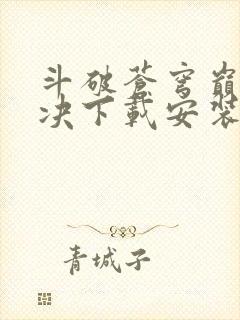 斗破苍穹巅
决下载安装
青城子